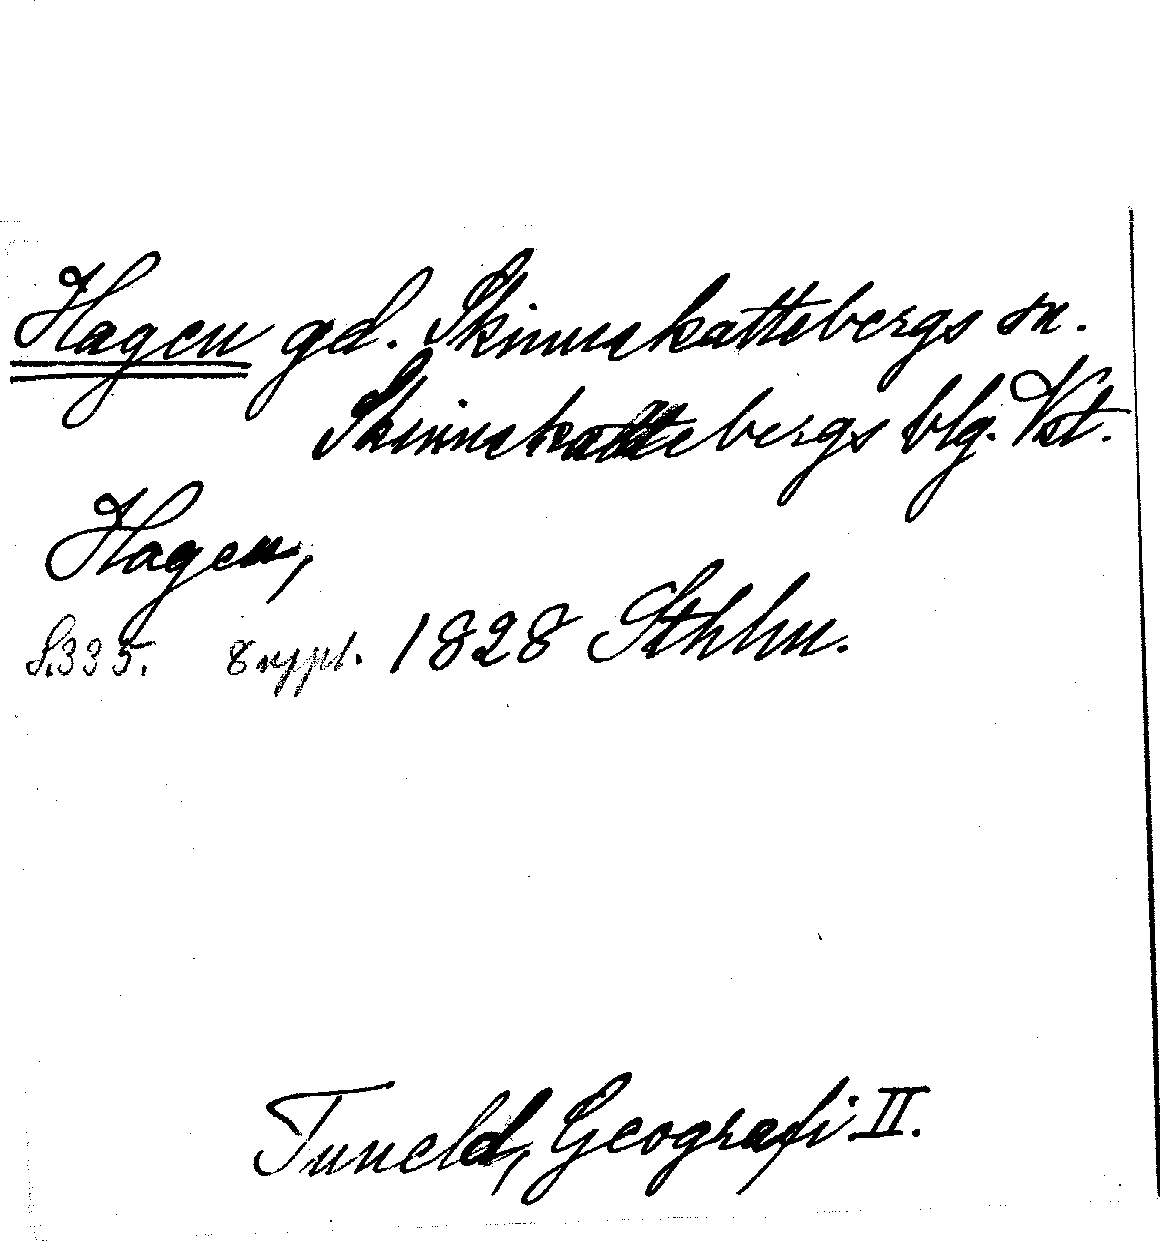 Hagen gd. Skinnskattebergs sn.
Skinnskattebergs blg. Vst.
Hagen,
S. 335. 8 uppl. 1828 Sthlm.
Tuneld, Geografi II.